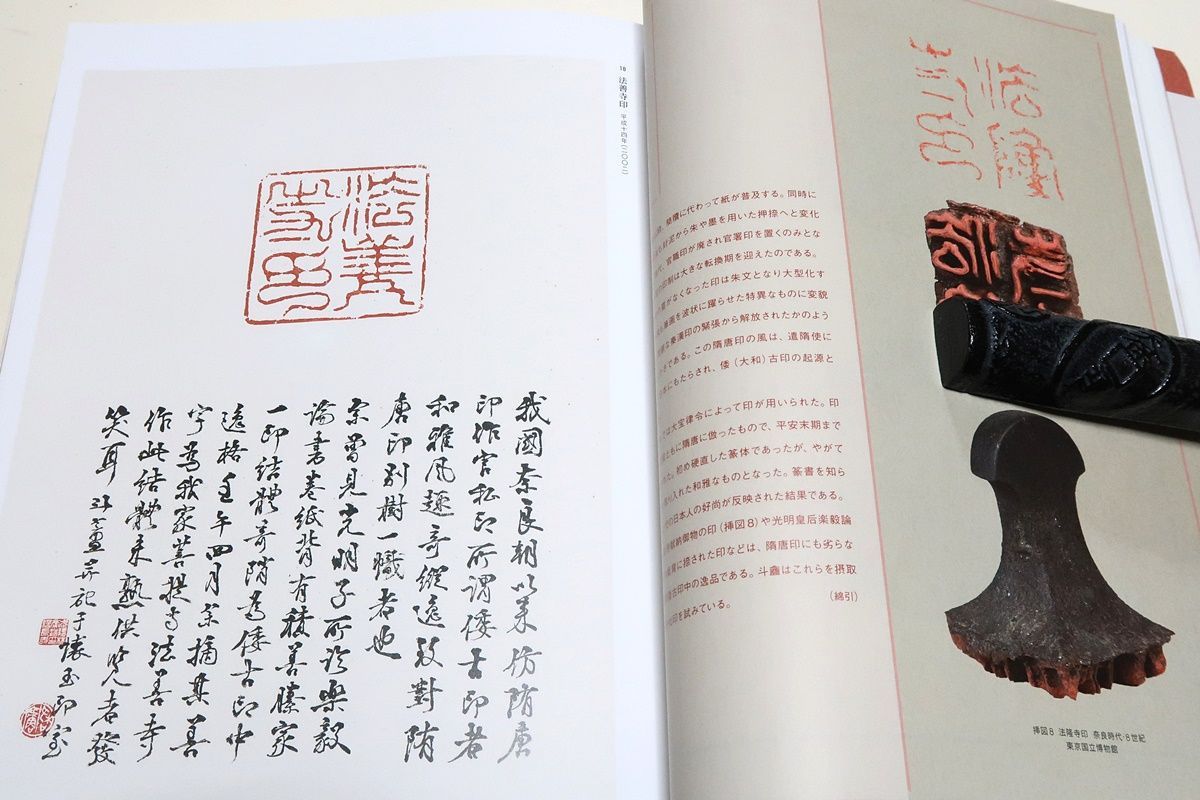 18 法善寺印 平成十四年(二〇〇二)
法善寺印
我國奈良朝以来仿隋唐
印作官私印所謂倭古印者
和雅風趣奇縱逸致對隋
唐印別樹一幟者也
余曾見光明子所臨樂毅
論書巻紙背有積善藤家
一印結體奇陗為倭古印中
逸格壬午四月余摘其善
字為我家菩提寺法善寺
作此結體未熟供覧者發
笑耳 斗盦并記于懐玉印室
法隆寺印
に代わって紙が普及する。同時に
から朱や墨を用いた押捺へと変化
官職印が廃され官署印を置くのみとな
印制は大きな転換期を迎えたのである。
がなくなった印は朱文となり大型化す
画を波状に躍らせた特異なものに変貌
な秦漢印の緊張から解放されたかのよう
である。この隋唐印の風は、遣隋使に
にもたらされ、倭(大和)古印の起源と
は大宝律令によって印が用いられた。印
ともに隋唐に倣ったもので、平安末期まで
た。初め硬直した篆体であったが、やがて
入れた和雅なものとなった。篆書を知ら
の日本人の好尚が反映された結果である。
献納御物の印(挿図8)や光明皇后楽毅論
に捺された印などは、隋唐印にも劣らな
古印中の逸品である。斗盦はこれらを摂取
印を試みている。 (綿引)
挿図8 法隆寺印 奈良時代・8世紀
東京国立博物館